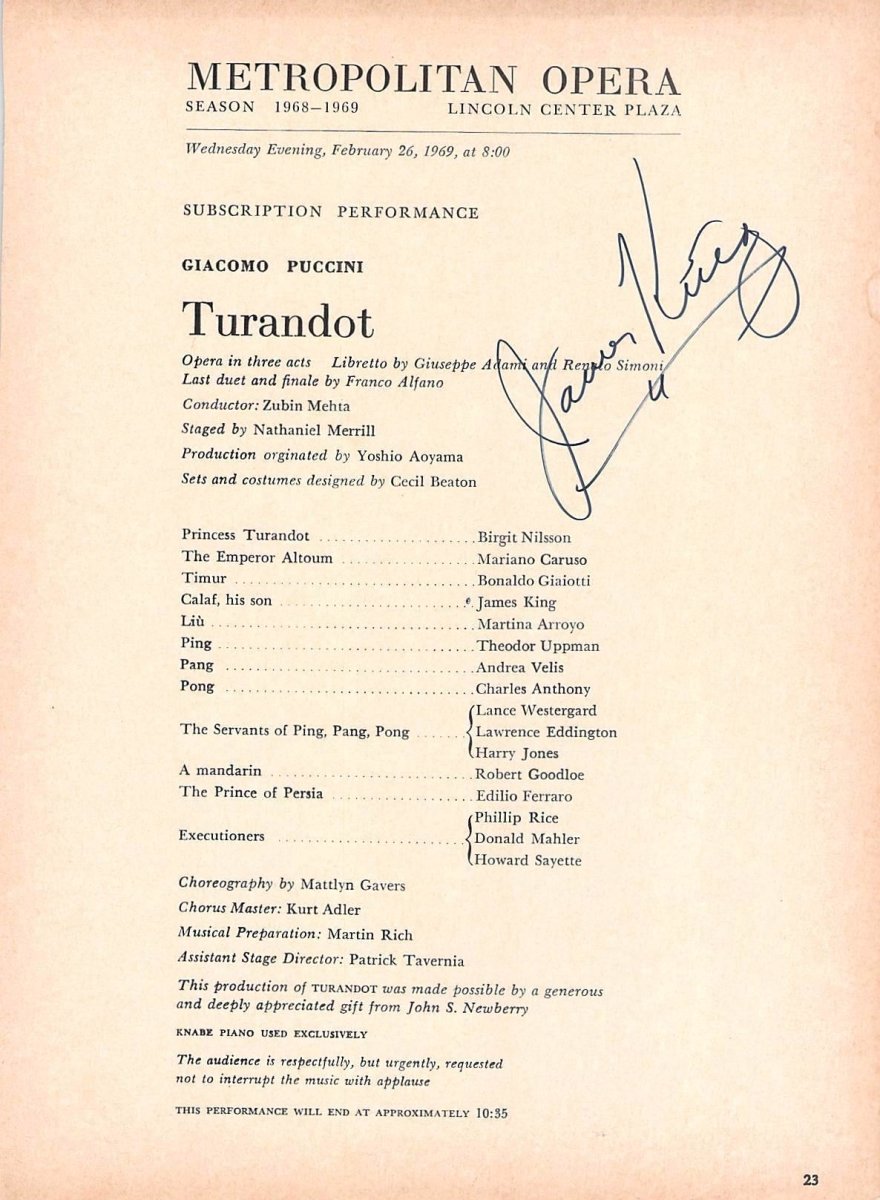 METROPOLITAN OPERA
SEASON 1968–1969 LINCOLN CENTER PLAZA
Wednesday Evening, February 26, 1969, at 8:00
SUBSCRIPTION PERFORMANCE
GIACOMO PUCCINI
Turandot
James King
Opera in three acts Libretto by Giuseppe Adami and Renato Simoni
Last duet and finale by Franco Alfano
Conductor: Zubin Mehta
Staged by Nathaniel Merrill
Production orginated by Yoshio Aoyama
Sets and costumes designed by Cecil Beaton
Princess Turandot ..................... Birgit Nilsson
The Emperor Altoum .................. Mariano Caruso
Timur ................................. Bonaldo Giaiotti
Calaf, his son .......................... James King
Liù .................................... Martina Arroyo
Ping ................................... Theodor Uppman
Pang .................................. Andrea Velis
Pong .................................. Charles Anthony
Lance Westergard
The Servants of Ping, Pang, Pong ...... Lawrence Eddington
Harry Jones
A mandarin ........................... Robert Goodloe
The Prince of Persia ................... Edilio Ferraro
Phillip Rice
Executioners ......................... Donald Mahler
Howard Sayette
Choreography by Mattlyn Gavers
Chorus Master: Kurt Adler
Musical Preparation: Martin Rich
Assistant Stage Director: Patrick Tavernia
This production of TURANDOT was made possible by a generous
and deeply appreciated gift from John S. Newberry
KNABE PIANO USED EXCLUSIVELY
The audience is respectfully, but urgently, requested
not to interrupt the music with applause
THIS PERFORMANCE WILL END AT APPROXIMATELY 10:35
23